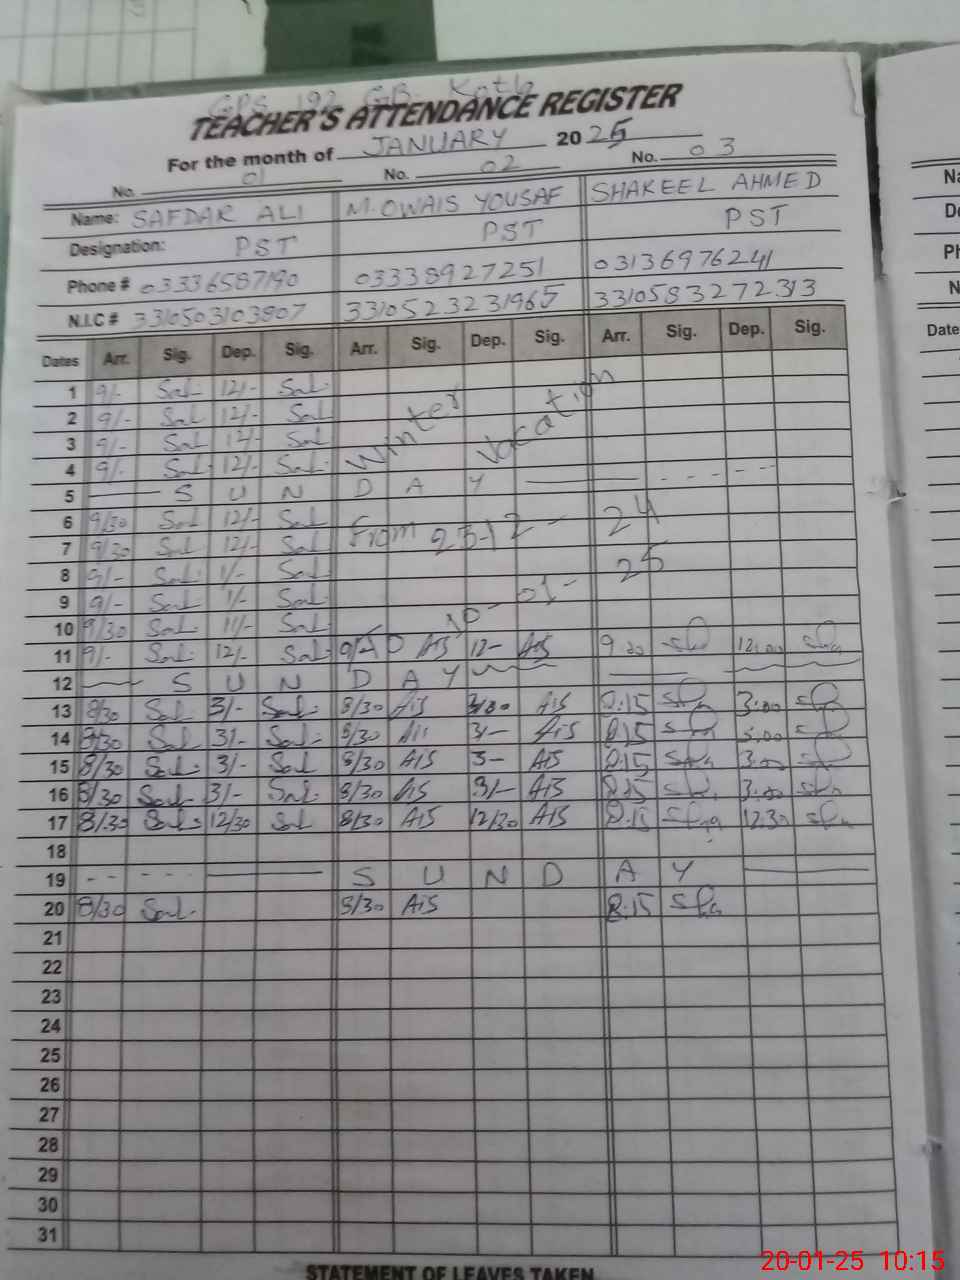 GPS 192 GB. Kotla
TEACHER'S ATTENDANCE REGISTER
For the month of JANUARY 2025
No. 01 No. 02 No. 03
Name: SAFDAR ALI M.OWAIS YOUSAF SHAKEEL AHMED
Designation: PST PST PST
Phone # 03336587190 03338927251 03136976241
N.I.C # 3310503103907 3310523231965 3310583272313
Dates Arr. Sig. Dep. Sig. Arr. Sig. Dep. Sig. Arr. Sig. Dep. Sig.
1 9/- 12/-
2 9/- 12/- Winter Vacation
3 9/- 12/-
4 9/- 12/-
5 S U N D A Y
6 9/30 12/- From 23-12-24
7 9/30 12/-
8 9/- 1/- 25
9 9/- 1/- 10-01-
10 9/30 11/-
11 9/- 12/- AiS 12- AiS 9:20 12:00
12 S U N D A Y
13 8/30 3/- 8/30 AiS 3/00 AiS 8:15 3:00
14 8/30 3/- 8/30 AiS 3- AiS 8:15 3:00
15 8/30 3/- 8/30 AiS 3- AiS 8:15 3:00
16 8/30 3/- 8/30 AiS 3/- AiS 8:15 3:00
17 8/30 12/30 8/30 AiS 12/30 AiS 8:15 12:30
18
19 S U N D A Y
20 8/30 8/30 AiS 8:15
21
22
23
24
25
26
27
28
29
30
31
STATEMENT OF LEAVES TAKEN
Na
De
Ph
N
Date
20-01-25 10:15